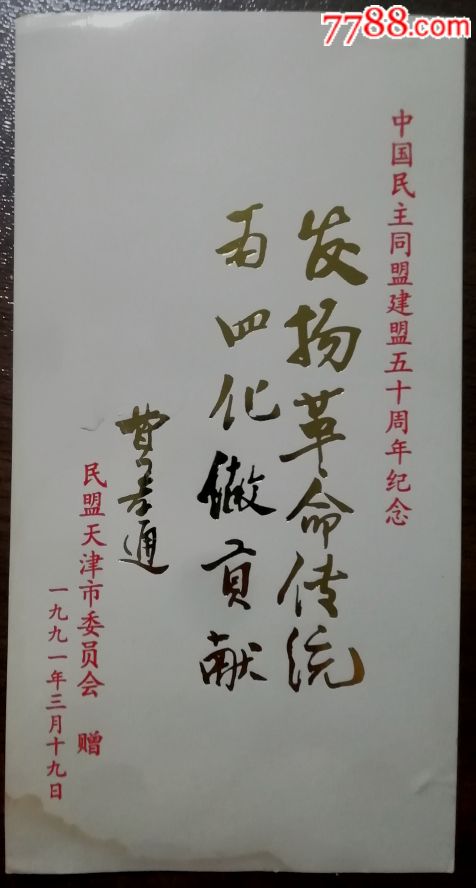 7788.com
中国民主同盟建盟五十周年纪念
发扬革命传统
为四化做贡献
费孝通
民盟天津市委员会 赠
一九九一年三月十九日